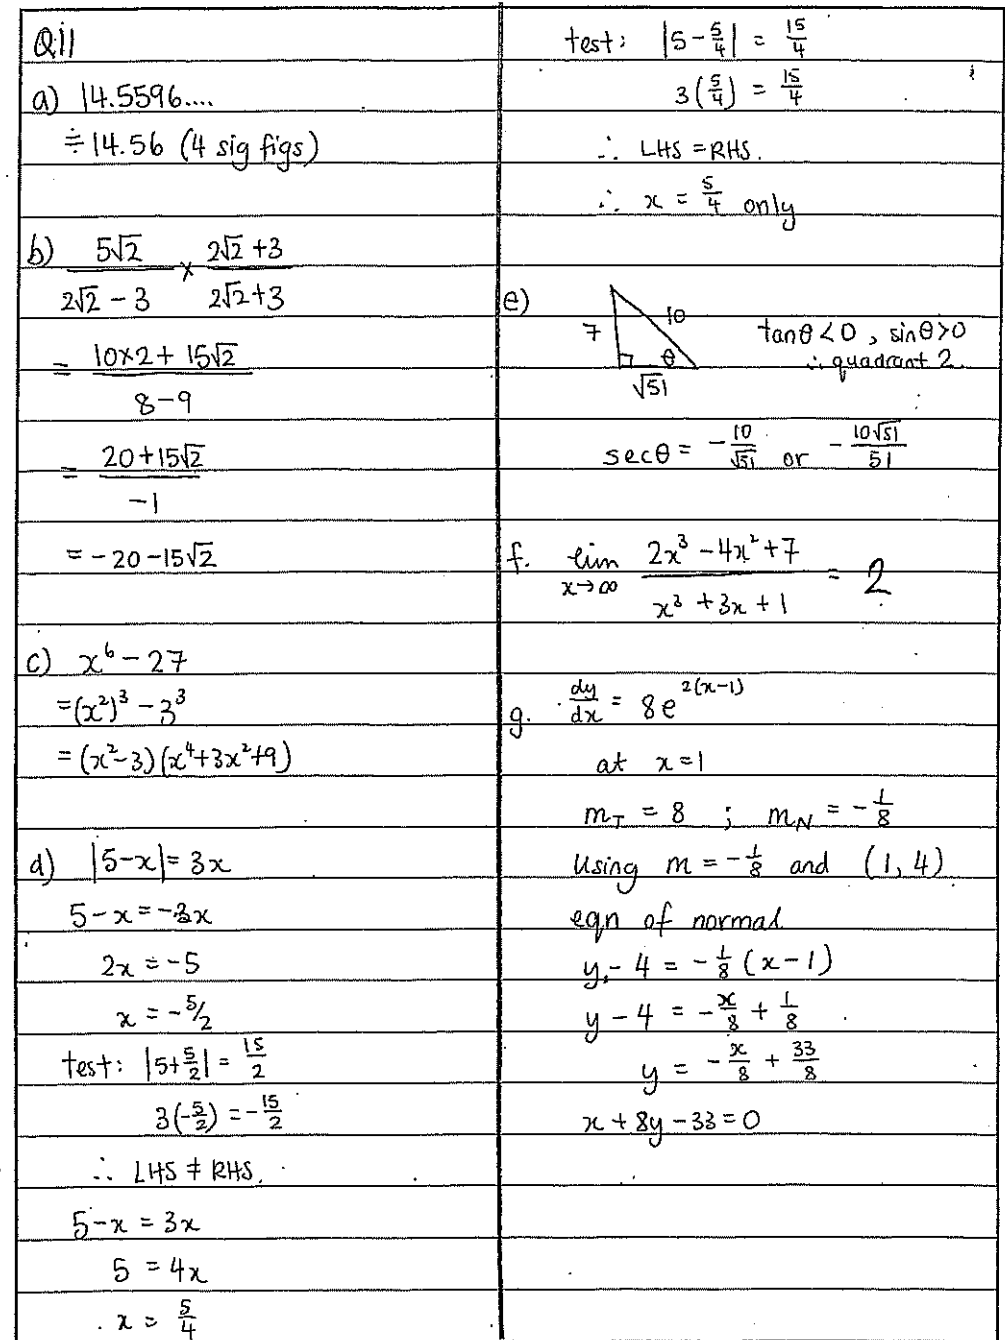 Q11
a) 14.5596....
≑ 14.56 (4 sig figs)
b) 5√2/(2√2 - 3) × (2√2 + 3)/(2√2 + 3)
= (10×2 + 15√2)/(8 - 9)
= (20 + 15√2)/(-1)
= -20 - 15√2
c) x⁶ - 27
= (x²)³ - 3³
= (x² - 3)(x⁴ + 3x² + 9)
d) |5 - x| = 3x
5 - x = -3x
2x = -5
x = -5/2
test: |5 + 5/2| = 15/2
3(-5/2) = -15/2
∴ LHS ≠ RHS.
5 - x = 3x
5 = 4x
x = 5/4
test: |5 - 5/4| = 15/4
3(5/4) = 15/4
∴ LHS = RHS.
∴ x = 5/4 only
e)
7
10
θ
√51
tanθ < 0, sinθ > 0
∴ quadrant 2.
secθ = -10/√51 or -10√51/51
f. lim x→∞ (2x³ - 4x² + 7)/(x³ + 3x + 1) = 2
g. dy/dx = 8e^(2(x-1))
at x = 1
m_T = 8 ; m_N = -1/8
Using m = -1/8 and (1, 4)
eqn of normal
y - 4 = -1/8 (x - 1)
y - 4 = -x/8 + 1/8
y = -x/8 + 33/8
x + 8y - 33 = 0